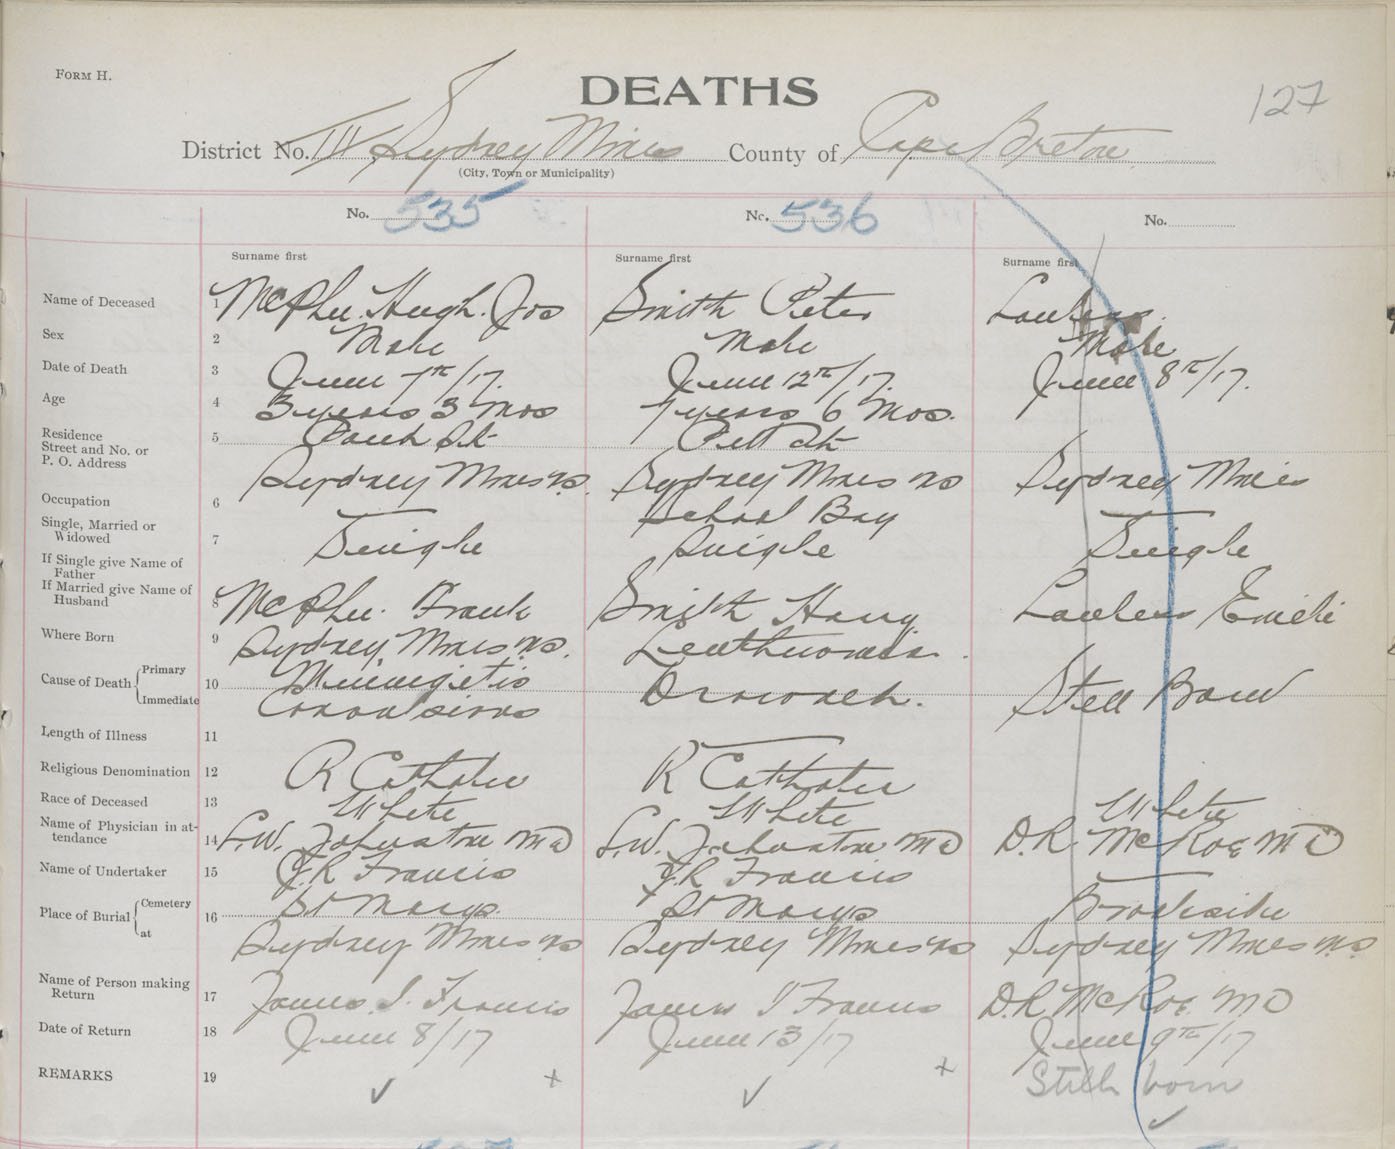 FORM H.
DEATHS
127
District No. III, Sydney Mines County of Cape Breton
(City, Town or Municipality)
No. 535 No. 536 No.
Surname first Surname first Surname first
Name of Deceased 1 McPhee Hugh Jos Smith Peter Lawless
Sex 2 Male Male Male
Date of Death 3 June 7th/17. June 12th/17. June 8th/17.
Age 4 3 years 3 Mos 7 years 6 Mos.
Residence
Street and No. or
P. O. Address
5 Pitt St
Sydney Mines NS. Sydney Mines NS Sydney Mines
Occupation 6 School Boy
Single, Married or
Widowed
7 Single Single Single
If Single give Name of
Father
If Married give Name of
Husband
8 McPhee Frank Smith Harry Lawless
Where Born 9 Sydney Mines NS.
Cause of Death Primary
Immediate
10 Meningetis Drowned. Still Born
Convulsions
Length of Illness 11
Religious Denomination 12 R Catholic R Catholic
Race of Deceased 13 White White White
Name of Physician in at-
tendance
14 L.W. Johnston MD L.W. Johnston MD D.R. McRae MD
Name of Undertaker 15 J.R Francis J.R Francis
Place of Burial Cemetery
at
16 St Marys St Marys Brookside
Sydney Mines NS Sydney Mines NS Sydney Mines N.S.
Name of Person making
Return
17 James J. Francis James J Francis D.R McRae MD
Date of Return 18 June 8/17 June 13/17 June 9th/17
REMARKS 19 Still born